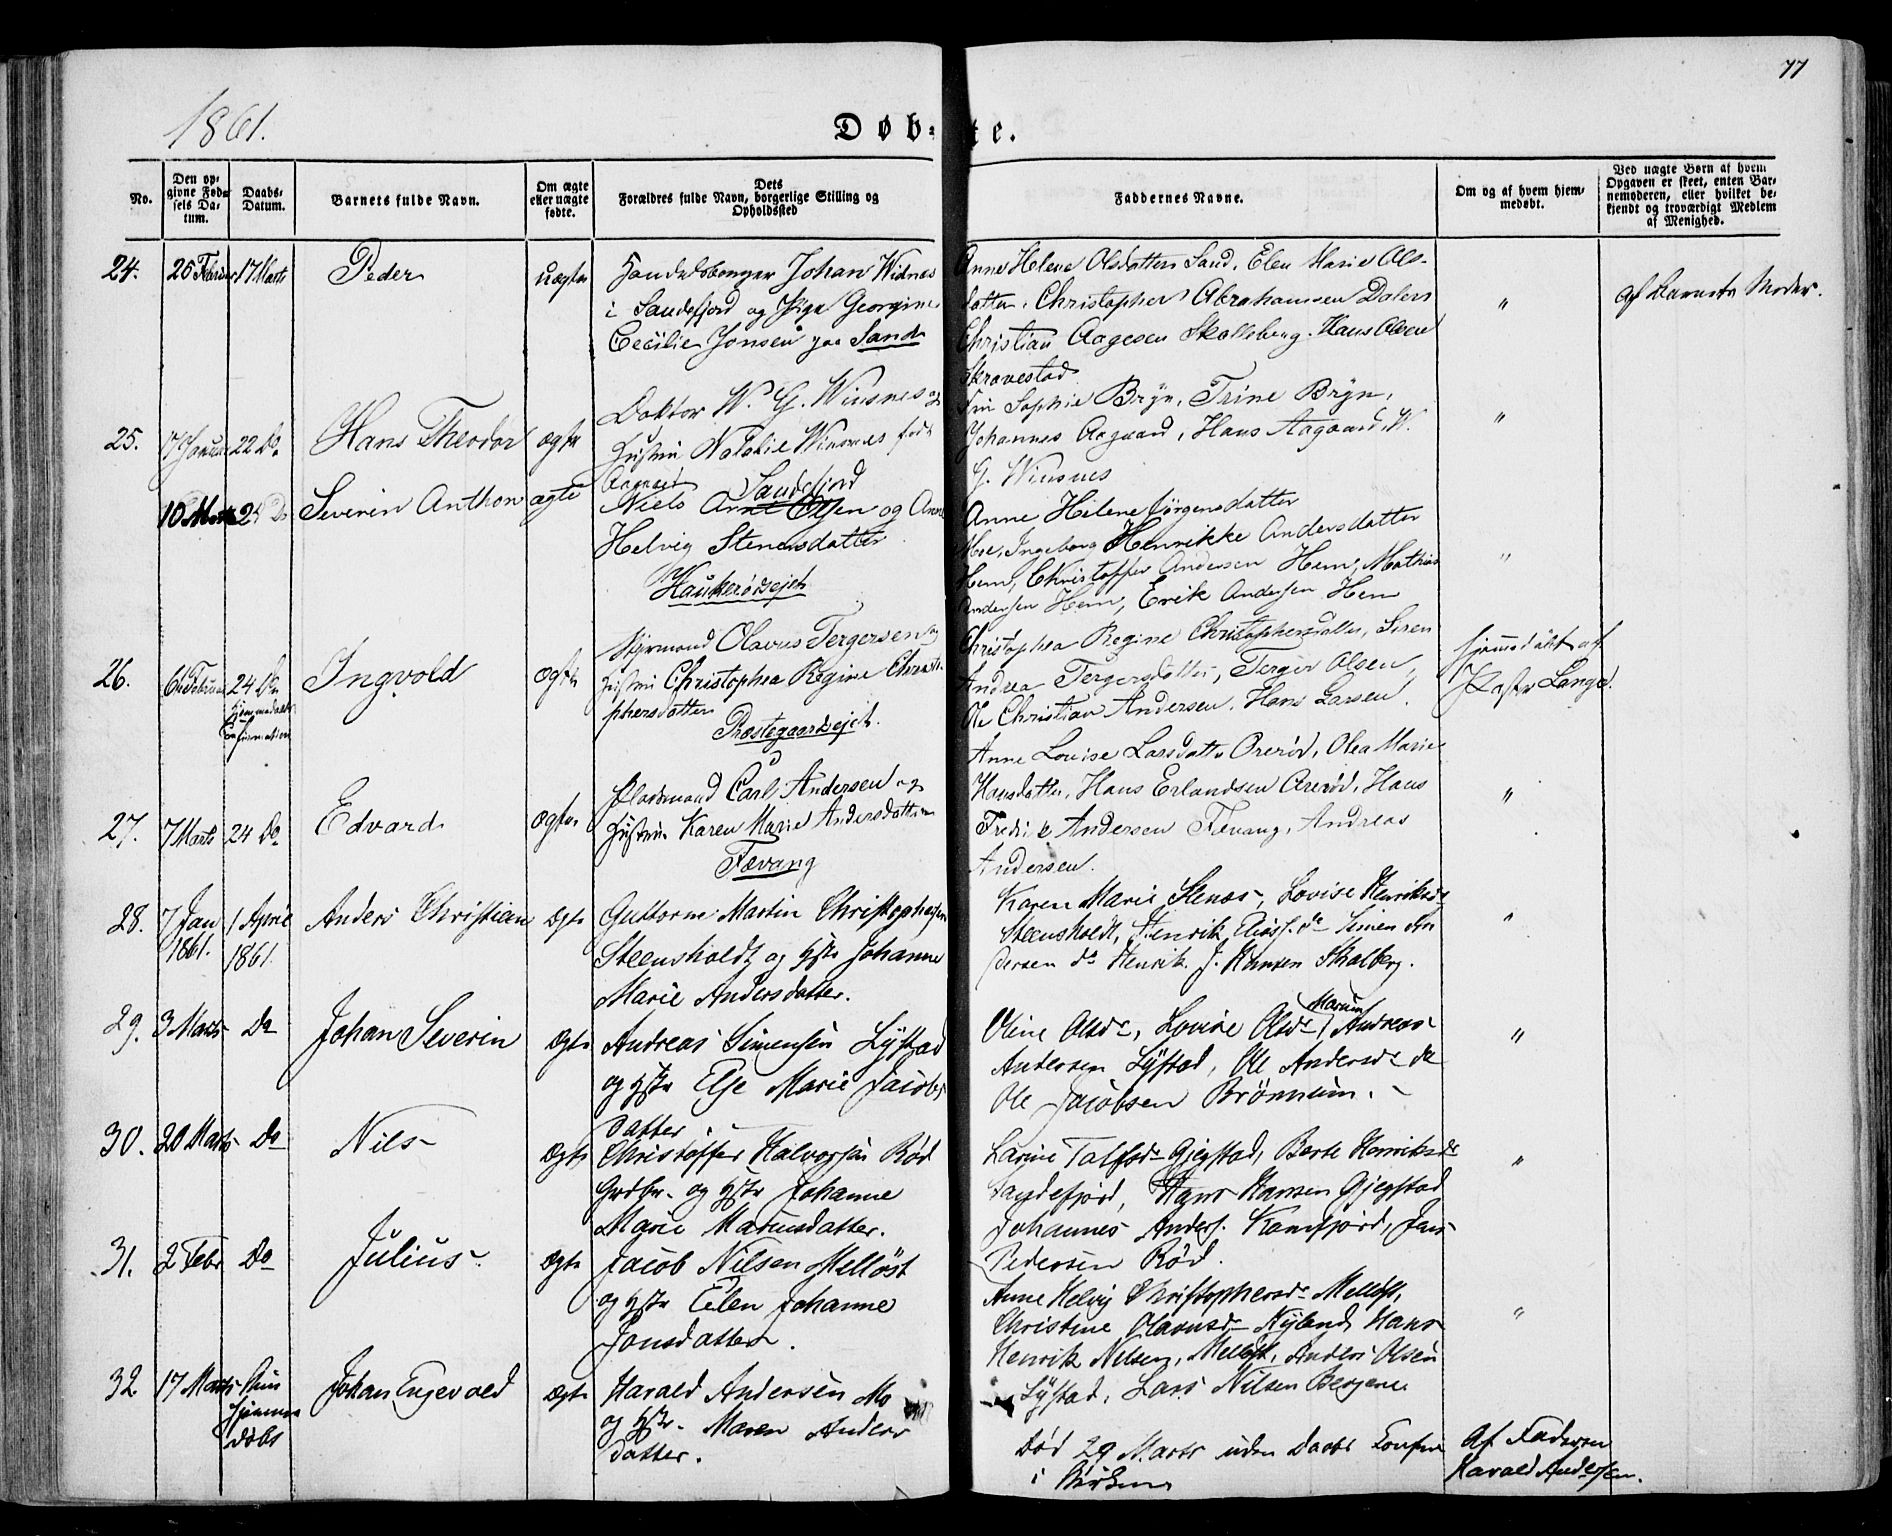 77
1861.
Døb-te.
No.
Den op-
givne Fød-
sels Da-
tum.
Daabs-
Datum.
Barnets fulde Navn.
Om ægte
eller uægte
fødte.
Dets
Forældres fulde Navn, borgerlige Stilling og
Opholdssted
Faddernes Navne.
Om og af hvem hjem-
medøbt.
Ved uægte Børn af hvem
Opgaven er skeet, enten Bar-
nemoderen, eller hvilket be-
kjendt og troværdigt Medlem
af Menighed.
24. 26 Februar 17 Marts Peder uægte
Johan Widnes
i Sandefjord og Pige Georgine
Cecilie Jonsen paa Sand
Anne Helene Olsdatter Sand, Elen Marie Ols-
datter, Christopher Abrahamsen Dalen
Christian Aagesen Skolleberg. Hans Olsen
Skravestad
"
af Barnets Moder.
25. 17 Januar 22 Do Hans Theodor ægte
Doktor W. G. Winsnes og
Hustru Natalie Winsnes født
Aagaard Sandefjord
Sophie Bryn, Trine Bryn,
Johannes Aagaard, Hans Aagaard, W.
G. Winsnes
"
10 Marts 24 Do Severin Anthon ægte
Niels Arne Olsen og Anne
Helvig Stenersdatter
Haukerødsejet
Anne Helene Jörgensdatter
Moe, Ingeborg Henrikke Andersdatter
Hem, Christoffer Andersen Hem, Mathias
Andersen Hem, Erik Andersen Hem
"
26. 6te Februar 24 Do Ingvold ægte
hjemmedøbt
Confirmation
Styrmand Olavus Tergersen og
Hustru Christophea Regine Christo-
phersdatter
Præstegaardsejet.
Christophea Regine Christophersdatter, Siren
Andrea Tergersdatter, Terger Olsen,
Ole Christian Andersen, Hans Larsen.
hjemmedøbt af
Præst Lange.
27. 7 Marts 24 Do Edvard ægte
Pladsmand Carl Andersen og
Hustru Karen Marie Andersdatter
Fævang
Anne Louise Larsdatter Orerød, Olea Marie
Hansdatter, Hans Erlandsen Orerød, Hans
Fredrik Andersen Fevang, Andreas
Andersen.
"
28. 7 Jan 1 April Anders Christian ægte
1861. 1861
Guttorm Martin Christophersen
Steensholdt og Hstr Johanne
Marie Andersdatter.
Karen Marie Stenos, Lovise Henriksd
Steensholdt, Henrik Eliass. do Simen An
dersen do Henrik J. Hansen Skalberg.
"
29. 3 Marts Do Johan Severin ægte
Andreas Simensen Lystad
og Hstr Else Marie Jacobs
datter.
Oline Olsdr, Lovise Olsdr, Andreas
Andersen Lystad, Ole Andersdr do
Ole Jacobsen Brønnum.
"
30. 20 Marts Do Nils ægte
Christoffer Halvorsen Rød
Grdbr. og Hstr Johanne
Marie Mariusdatter.
Larine Tolfsdr Gjegstad, Berte Henriksdr
Sandefjord, Hans Hansen Gjegstad
Johannes Anders. Kamfjord, Jans
Pedersen Rød.
"
31. 2 Febr Do Julius ægte
Jacob Nilsen Melløst
og Hstr Elen Johanne
Jonsdatter.
Anne Helvig Christophersdr Melløst,
Christine Olavusdr Nyland, Hans
Henrik Nilsen, Melløst, Anders Olsen
Lystad, Lars Nilsen Bergene
"
32. 17 Marts Johan Engevald ægte
hjemme
døbt
Harald Andersen Mo
og Hstr. Maren Anders
datter.
Død 29 Marts uden Daabs Confirm
i Kirken
Af Faderen
Harald Andersen.